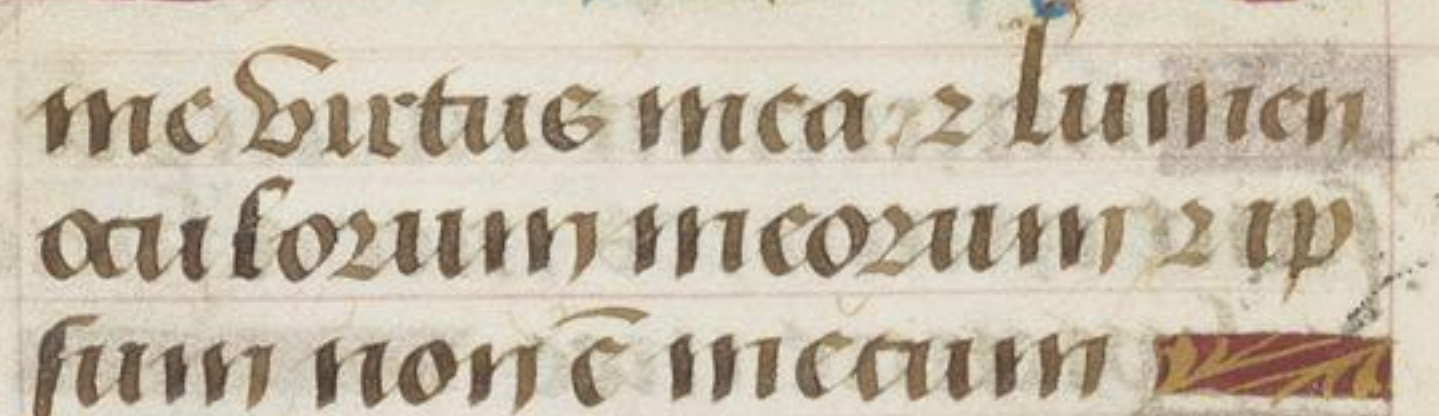 me virtus mea: ⁊ lumen
oculorum meorum ⁊ ip
sum non ē mecum